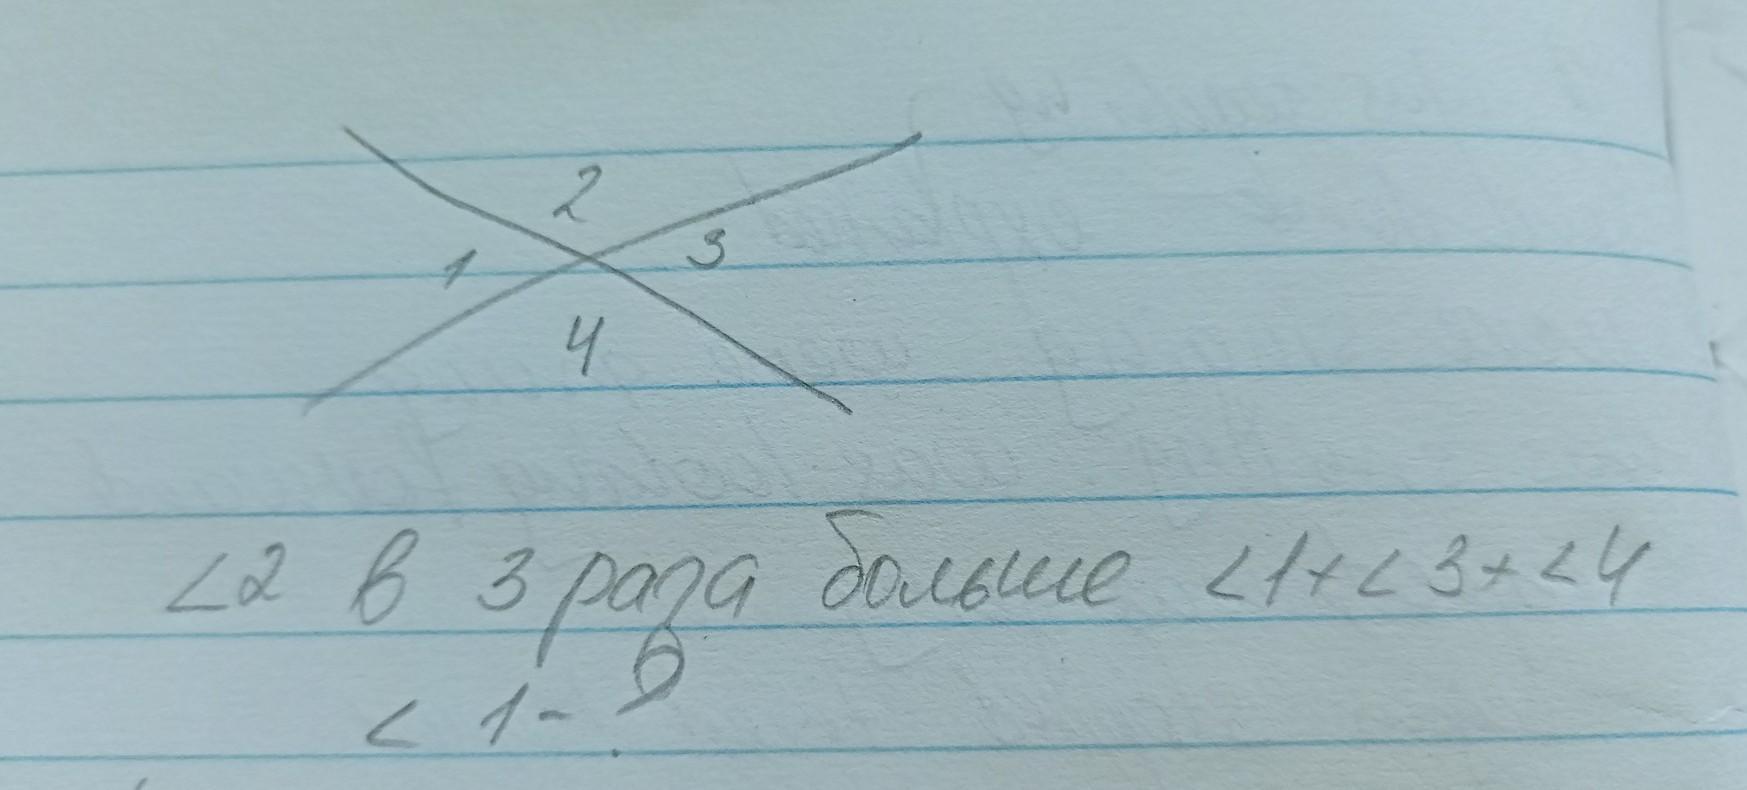 2
1 3
4
<2 в 3 раза больше <1+<3+<4
<1-?